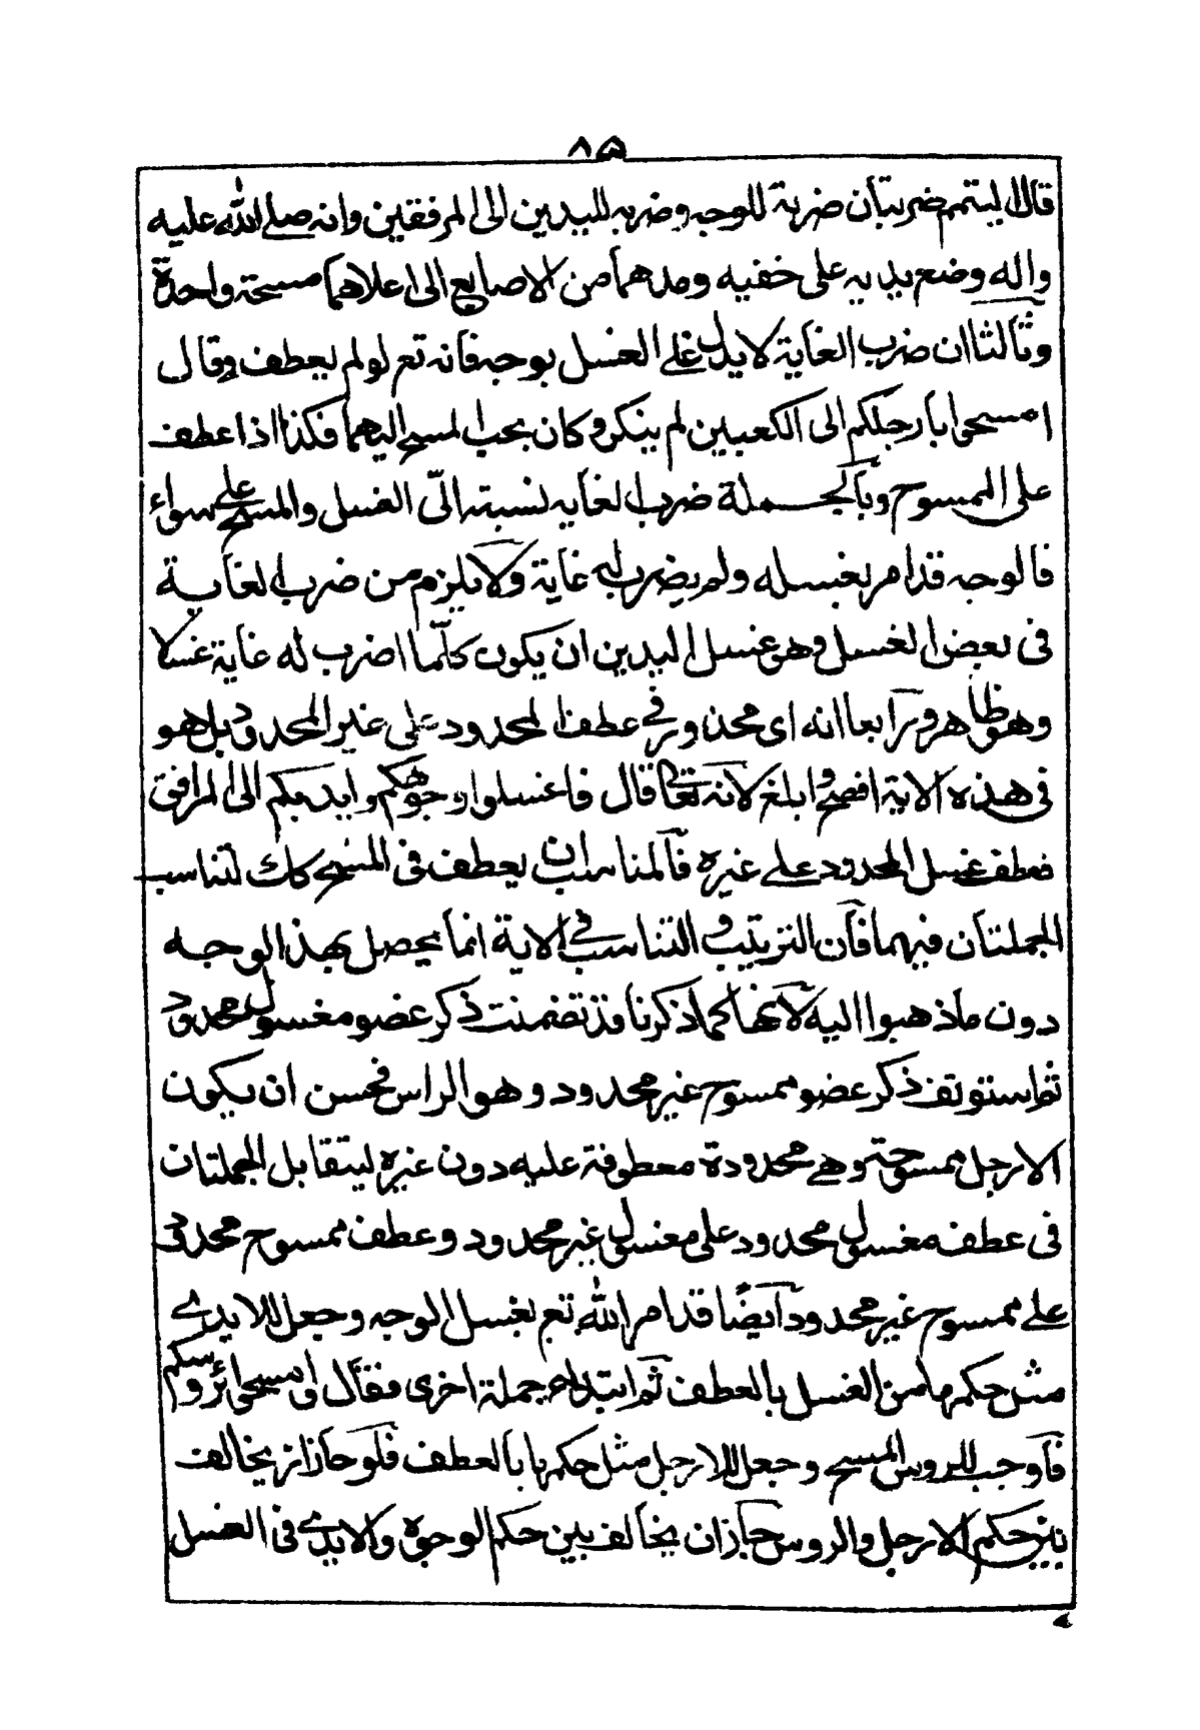 ٨۵
قال التيمم ضربتان ضربة للوجه وضربه لليدين الى المرفقين وانه صلے الله عليه
واله وضع يديه على خفيه ومدهما من الاصابع الى اعلاهما مسحة واحدة
وثالثا ان ضرب الغاية لا يدل علے الغسل بوجه فانه تع لو لم يعطف وقال
امسحوا بارجلكم الى الكعبين لم ينكر وكان يجب المسح اليهما فكذا اذا عطف
على الممسوح وبالجملة ضرب الغايه نسبته الى الغسل والمسح علے سواء
فالوجه قد امر بغسله ولم يضرب له غاية ولا يلزم من ضرب الغاية
فى بعض الغسل وهو غسل اليدين ان يكون كلما اضرب له غاية غسلا
وهو ظاهر ورابعا انه اى محذور فے عطف المحدود على غير المحدود بل هو
فى هذه الاية افصح وابلغ لانه تعالى قال فاغسلوا وجوهكم وايديكم الى المرافق
فعطف غسل المحدود علے غيره فالمناسب ان يعطف فى المسح كك لتناسب
الجملتان فيهما فان الترتيب والتناسب فے الاية انما يحصل بهذا الوجه
دون ما ذهبوا اليه لانها كما ذكرنا قد تضمنت ذكر عضو مغسول محدود
ثم استونف ذكر عضو ممسوح غير محدود وهو الراس فحسن ان يكون
الارجل ممسوحة وهے محدودة معطوفة عليه دون غيره ليتقابل الجملتان
فى عطف مغسول محدود على مغسول غير محدود وعطف ممسوح محدود
علے ممسوح غير محدود ايضًا قد امر الله تع بغسل الوجه وجعل للايدے
مثل حكمها من الغسل بالعطف ثم ابتداء جملة اخرى فقال وامسحوا برؤسكم
فاوجب للروس المسح وجعل للارجل مثل حكمها بالعطف فلو جاز ان يخالف
بين حكم الارجل والروس جاز ان يخالف بين حكم الوجوه والايدے فى الغسل